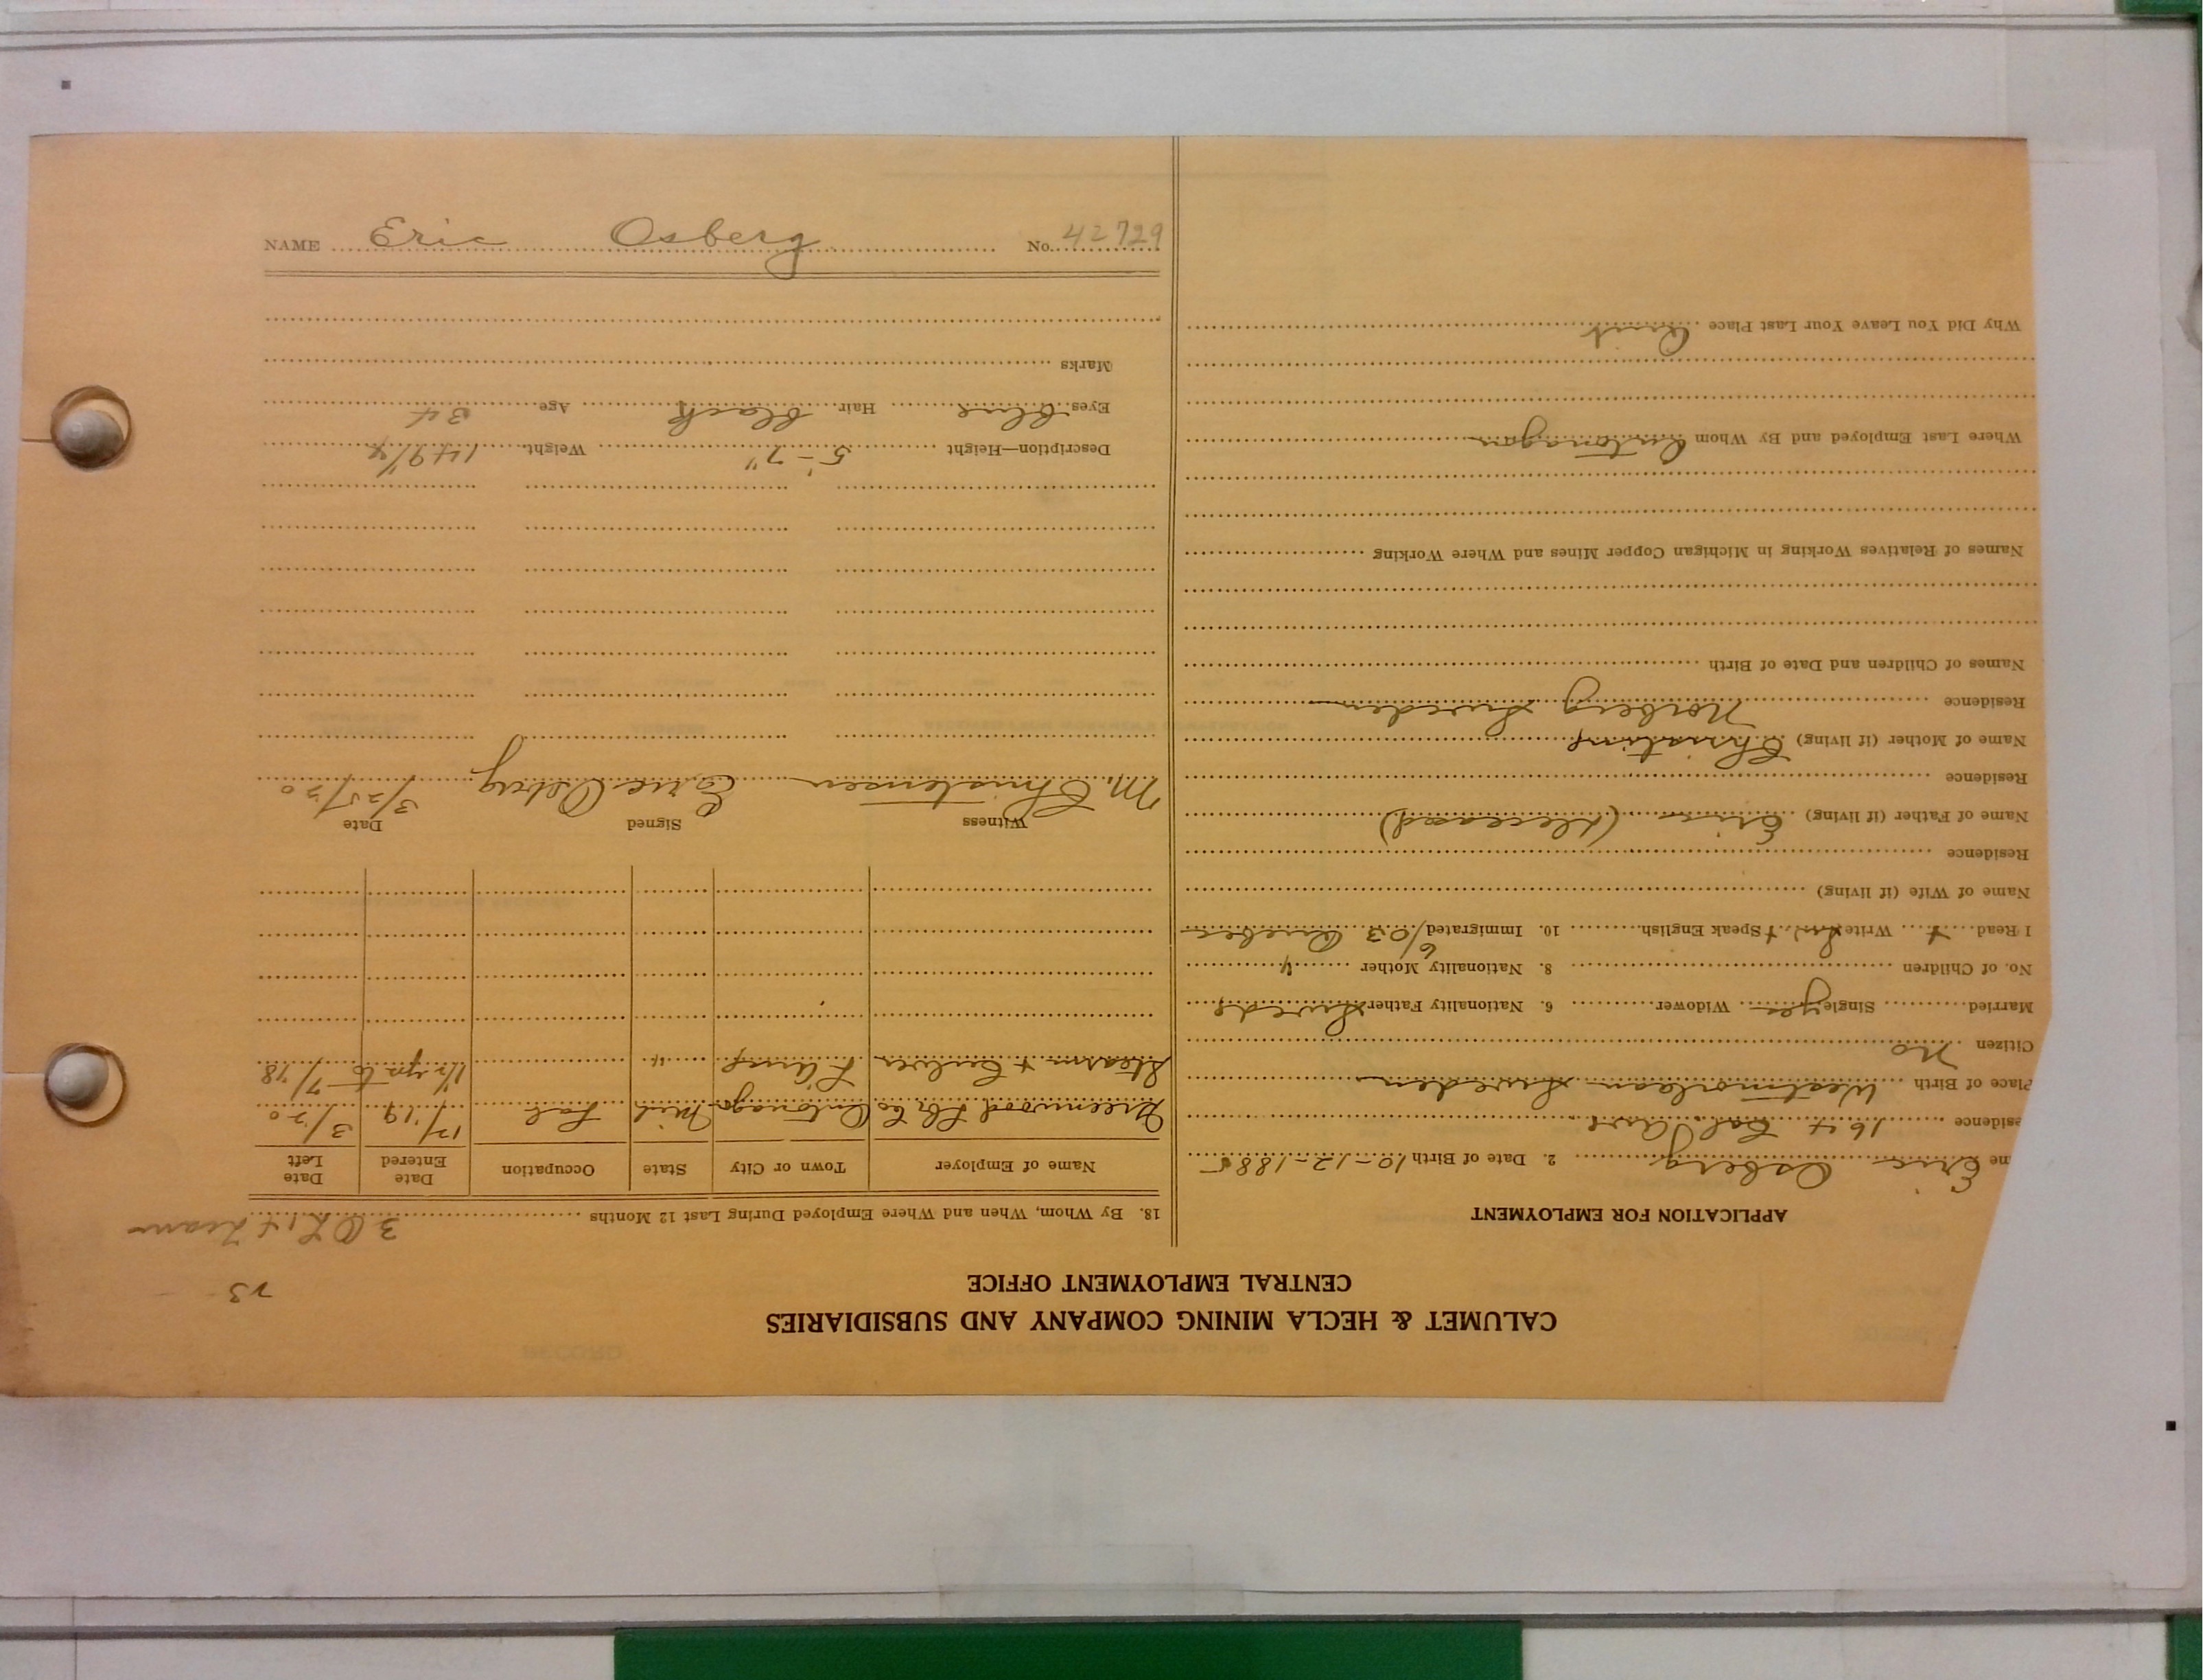 CALUMET & HECLA MINING COMPANY AND SUBSIDIARIES
CENTRAL EMPLOYMENT OFFICE
APPLICATION FOR EMPLOYMENT
me Eric Osberg 2. Date of Birth 10-12-1885
esidence 164 Cal. Ave
Place of Birth Westmorlaan Sweden
Citizen No
Married Single yes Widower 6. Nationality Father Swede
No. of Children 8. Nationality Mother "
I Read + Write Sw + Speak English 10. Immigrated 6/03 Quebec
Name of Wife (if living)
Residence
Name of Father (if living) Eric (deceased)
Residence
Name of Mother (if living) Christine
Residence Norberg Sweden
Names of Children and Date of Birth
Names of Relatives Working in Michigan Copper Mines and Where Working
Where Last Employed and By Whom Ontonagon
Why Did You Leave Your Last Place Quit
23
18. By Whom, When and Where Employed During Last 12 Months 3
Name of Employer Town or City State Occupation Date Entered Date Left
Greenwood Lbr Co Ontonagon Mich Lab 12/19 3/20
Stearns + Culver L'Anse " 1 1/2 yrs to 7/18
Witness Signed Date
M. Christensen Eric Osberg 3/25/20
Description—Height 5'-7" Weight 149 1/4
Eyes Blue Hair black Age 34
Marks
NAME Eric Osberg No. 42729